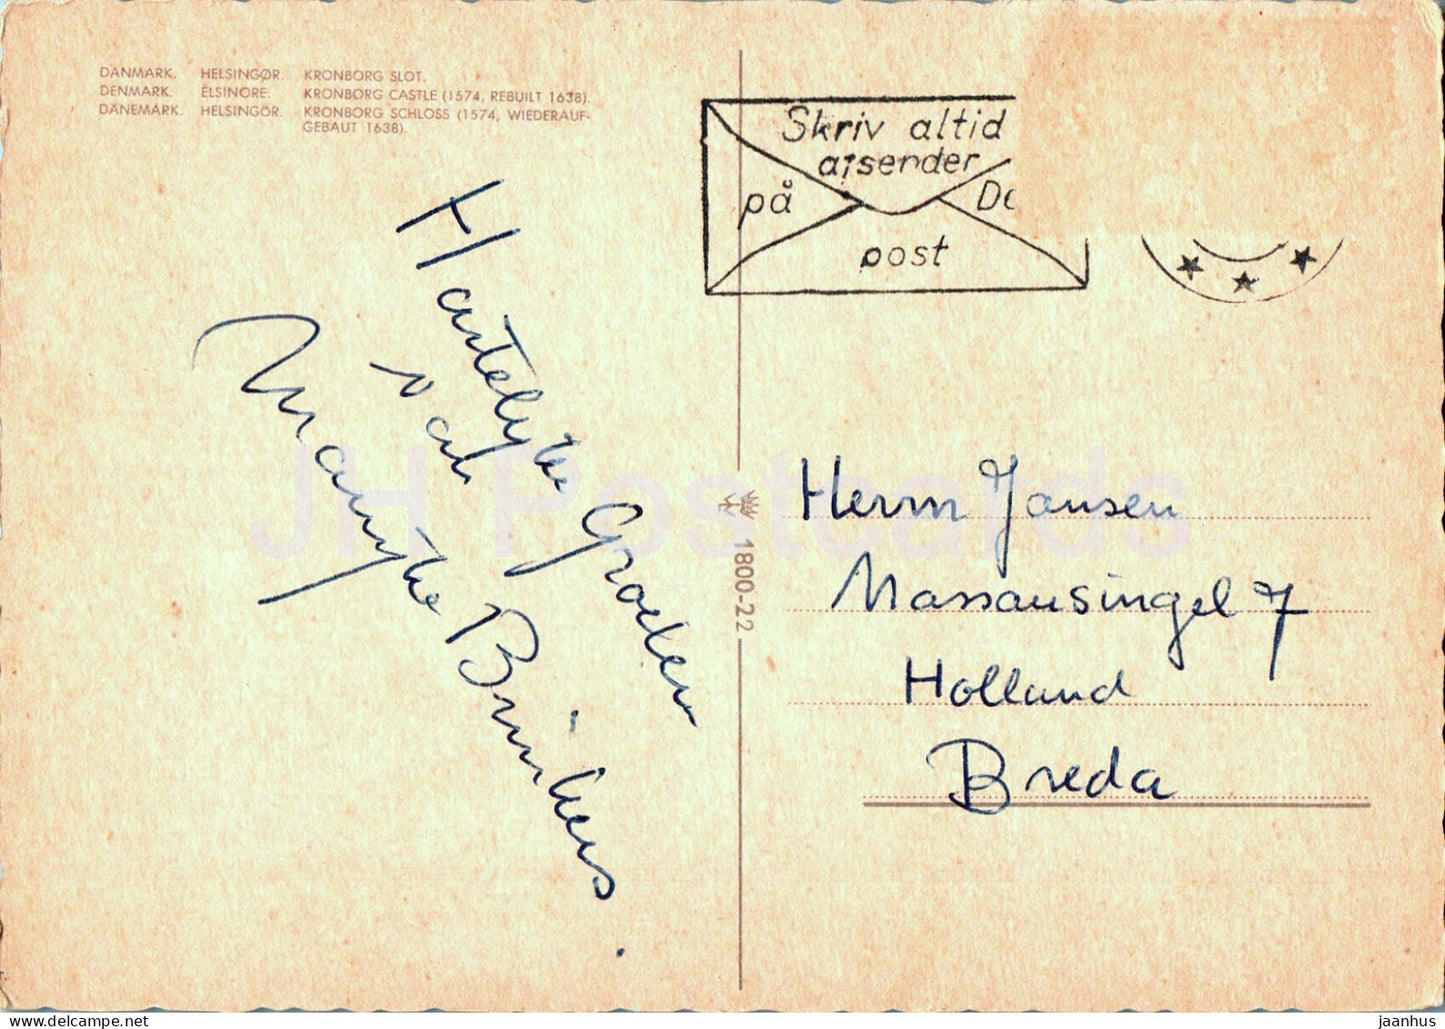 DANMARK. HELSINGØR. KRONBORG SLOT.
DENMARK. ELSINORE. KRONBORG CASTLE (1574, REBUILT 1638).
DÄNEMARK. HELSINGÖR. KRONBORG SCHLOSS (1574, WIEDERAUF-
GEBAUT 1638).
Skriv altid
afsender
på
post
Hartelijke Groeten
van
Marijke Brinkers.
1800-22
Herrn Jansen
Nassausingel 7
Holland
Breda
JH Postcards
www.delcampe.net
jaanhus